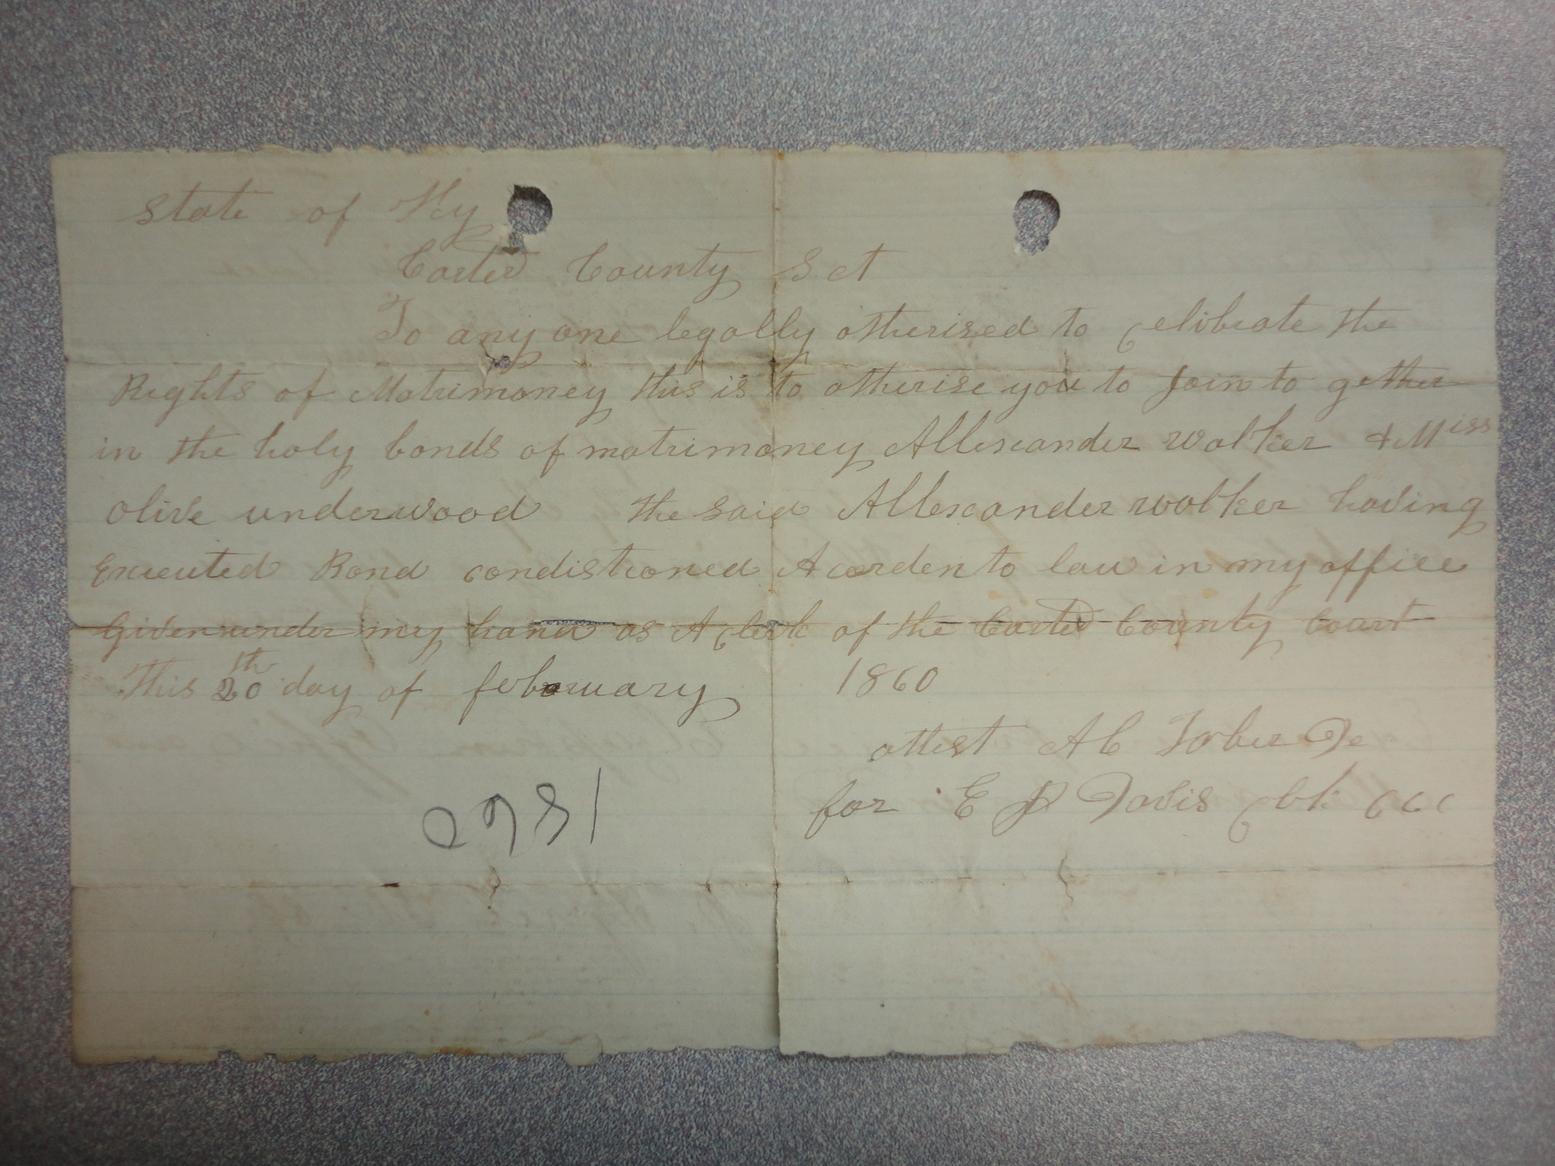 State of Ky
Carter County Sct
To any one legally otherised to celibrate the
Rights of Matrimoney this is to otherise you to Join to gether
in the holy bonds of matrimoney Allexcander walker & Miss
olive underwood the said Allexcander walker having
Executed Bond condistioned Acorden to law in my office
Given under my hand as A clerk of the Carter County Court
This 20th day of february 1860
attest AC
for E D Davis clk CCC
1860